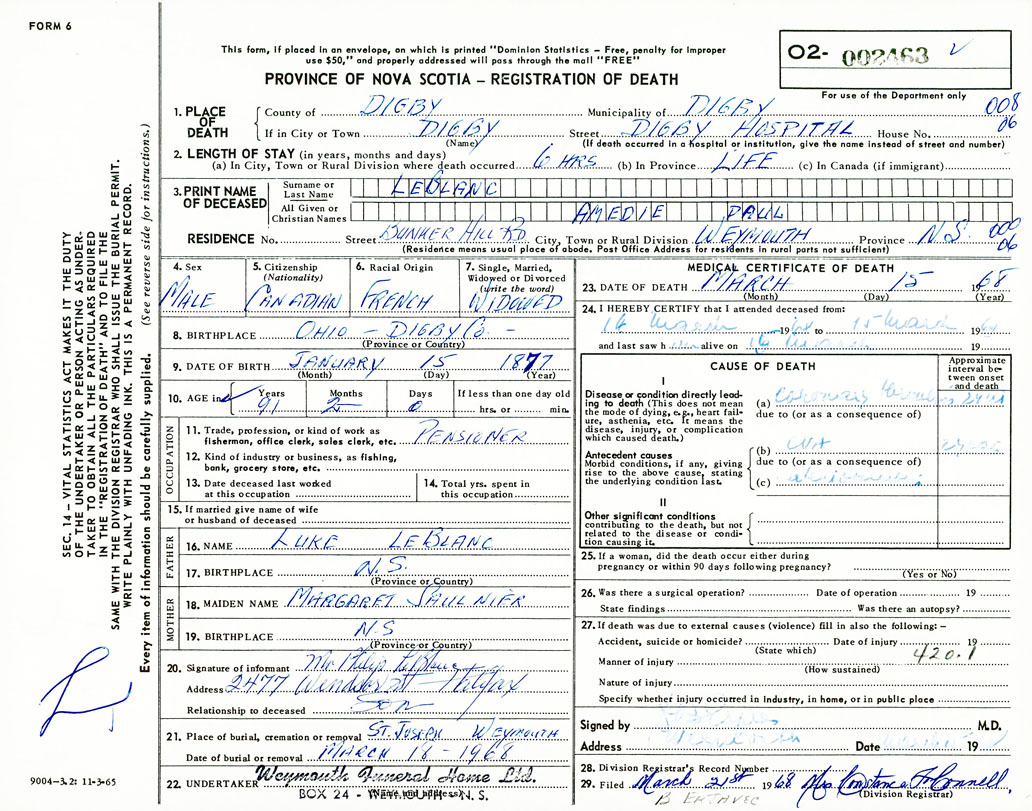 FORM 6
This form, if placed in an envelope, on which is printed "Dominion Statistics – Free, penalty for improper
use $50," and properly addressed will pass through the mail "FREE"
PROVINCE OF NOVA SCOTIA – REGISTRATION OF DEATH
O2- 002463
For use of the Department only
008
06
1. PLACE OF DEATH
County of DIGBY Municipality of DIGBY
If in City or Town DIGBY Street DIGBY HOSPITAL House No.
(Name) (If death occurred in a hospital or institution, give the name instead of street and number)
2. LENGTH OF STAY (in years, months and days)
(a) In City, Town or Rural Division where death occurred 6 HRS (b) In Province LIFE (c) In Canada (if immigrant)
3. PRINT NAME OF DECEASED
Surname or Last Name LEBLANC
All Given or Christian Names AMEDIE PAUL
RESIDENCE No. Street BUNKER HILL RD City, Town or Rural Division WEYMOUTH Province N.S. 000
06
(Residence means usual place of abode. Post Office Address for residents in rural parts not sufficient)
4. Sex
MALE
5. Citizenship
(Nationality)
CANADIAN
6. Racial Origin
FRENCH
7. Single, Married,
Widowed or Divorced
(write the word)
WIDOWED
8. BIRTHPLACE OHIO – DIGBY CO. –
(Province or Country)
9. DATE OF BIRTH JANUARY 15 1877
(Month) (Day) (Year)
10. AGE in
Years Months Days If less than one day old
91 2 0 hrs. or min.
OCCUPATION
11. Trade, profession, or kind of work as
fisherman, office clerk, sales clerk, etc. PENSIONER
12. Kind of industry or business, as fishing,
bank, grocery store, etc.
13. Date deceased last worked
at this occupation
14. Total yrs. spent in
this occupation
15. If married give name of wife
or husband of deceased
FATHER
16. NAME LUKE LEBLANC
17. BIRTHPLACE N.S.
(Province or Country)
MOTHER
18. MAIDEN NAME MARGARET SAULNIER
19. BIRTHPLACE N.S
(Province or Country)
20. Signature of informant Mr Philip
Address 2477 Windsor St – Halifax
Relationship to deceased Son
21. Place of burial, cremation or removal ST. JOSEPH WEYMOUTH
Date of burial or removal MARCH 18 – 1968
22. UNDERTAKER Weymouth Funeral Home Ltd.
(Name and address)
BOX 24 - WEYMOUTH, N. S.
MEDICAL CERTIFICATE OF DEATH
23. DATE OF DEATH MARCH 15 1968
(Month) (Day) (Year)
24. I HEREBY CERTIFY that I attended deceased from:
14 March 19 to 15 March 19
and last saw h alive on March 19
CAUSE OF DEATH
Approximate
interval be-
tween onset
and death
I
Disease or condition directly lead-
ing to death (This does not mean
the mode of dying, e.g., heart fail-
ure, asthenia, etc. It means the
disease, injury, or complication
which caused death.)
(a) Coronary
due to (or as a consequence of)
Antecedent causes
Morbid conditions, if any, giving
rise to the above cause, stating
the underlying condition last.
(b)
due to (or as a consequence of)
(c)
II
Other significant conditions
contributing to the death, but not
related to the disease or condi-
tion causing it.
25. If a woman, did the death occur either during
pregnancy or within 90 days following pregnancy?
(Yes or No)
26. Was there a surgical operation? Date of operation 19
State findings Was there an autopsy?
27. If death was due to external causes (violence) fill in also the following: –
Accident, suicide or homicide? Date of injury 19
(State which)
420.1
Manner of injury
(How sustained)
Nature of injury
Specify whether injury occurred in Industry, in home, or in public place
Signed by M.D.
Address Date 19
28. Division Registrar's Record Number
29. Filed March 21st 1968 Mrs Constance
(Division Registrar)
SEC. 14 – VITAL STATISTICS ACT MAKES IT THE DUTY
OF THE UNDERTAKER OR PERSON ACTING AS UNDER-
TAKER TO OBTAIN ALL THE PARTICULARS REQUIRED
IN THE "REGISTRATION OF DEATH" AND TO FILE THE
SAME WITH THE DIVISION REGISTRAR WHO SHALL ISSUE THE BURIAL PERMIT.
WRITE PLAINLY WITH UNFADING INK. THIS IS A PERMANENT RECORD.
Every item of information should be carefully supplied. (See reverse side for instructions.)
9004–3.2: 11-3-65